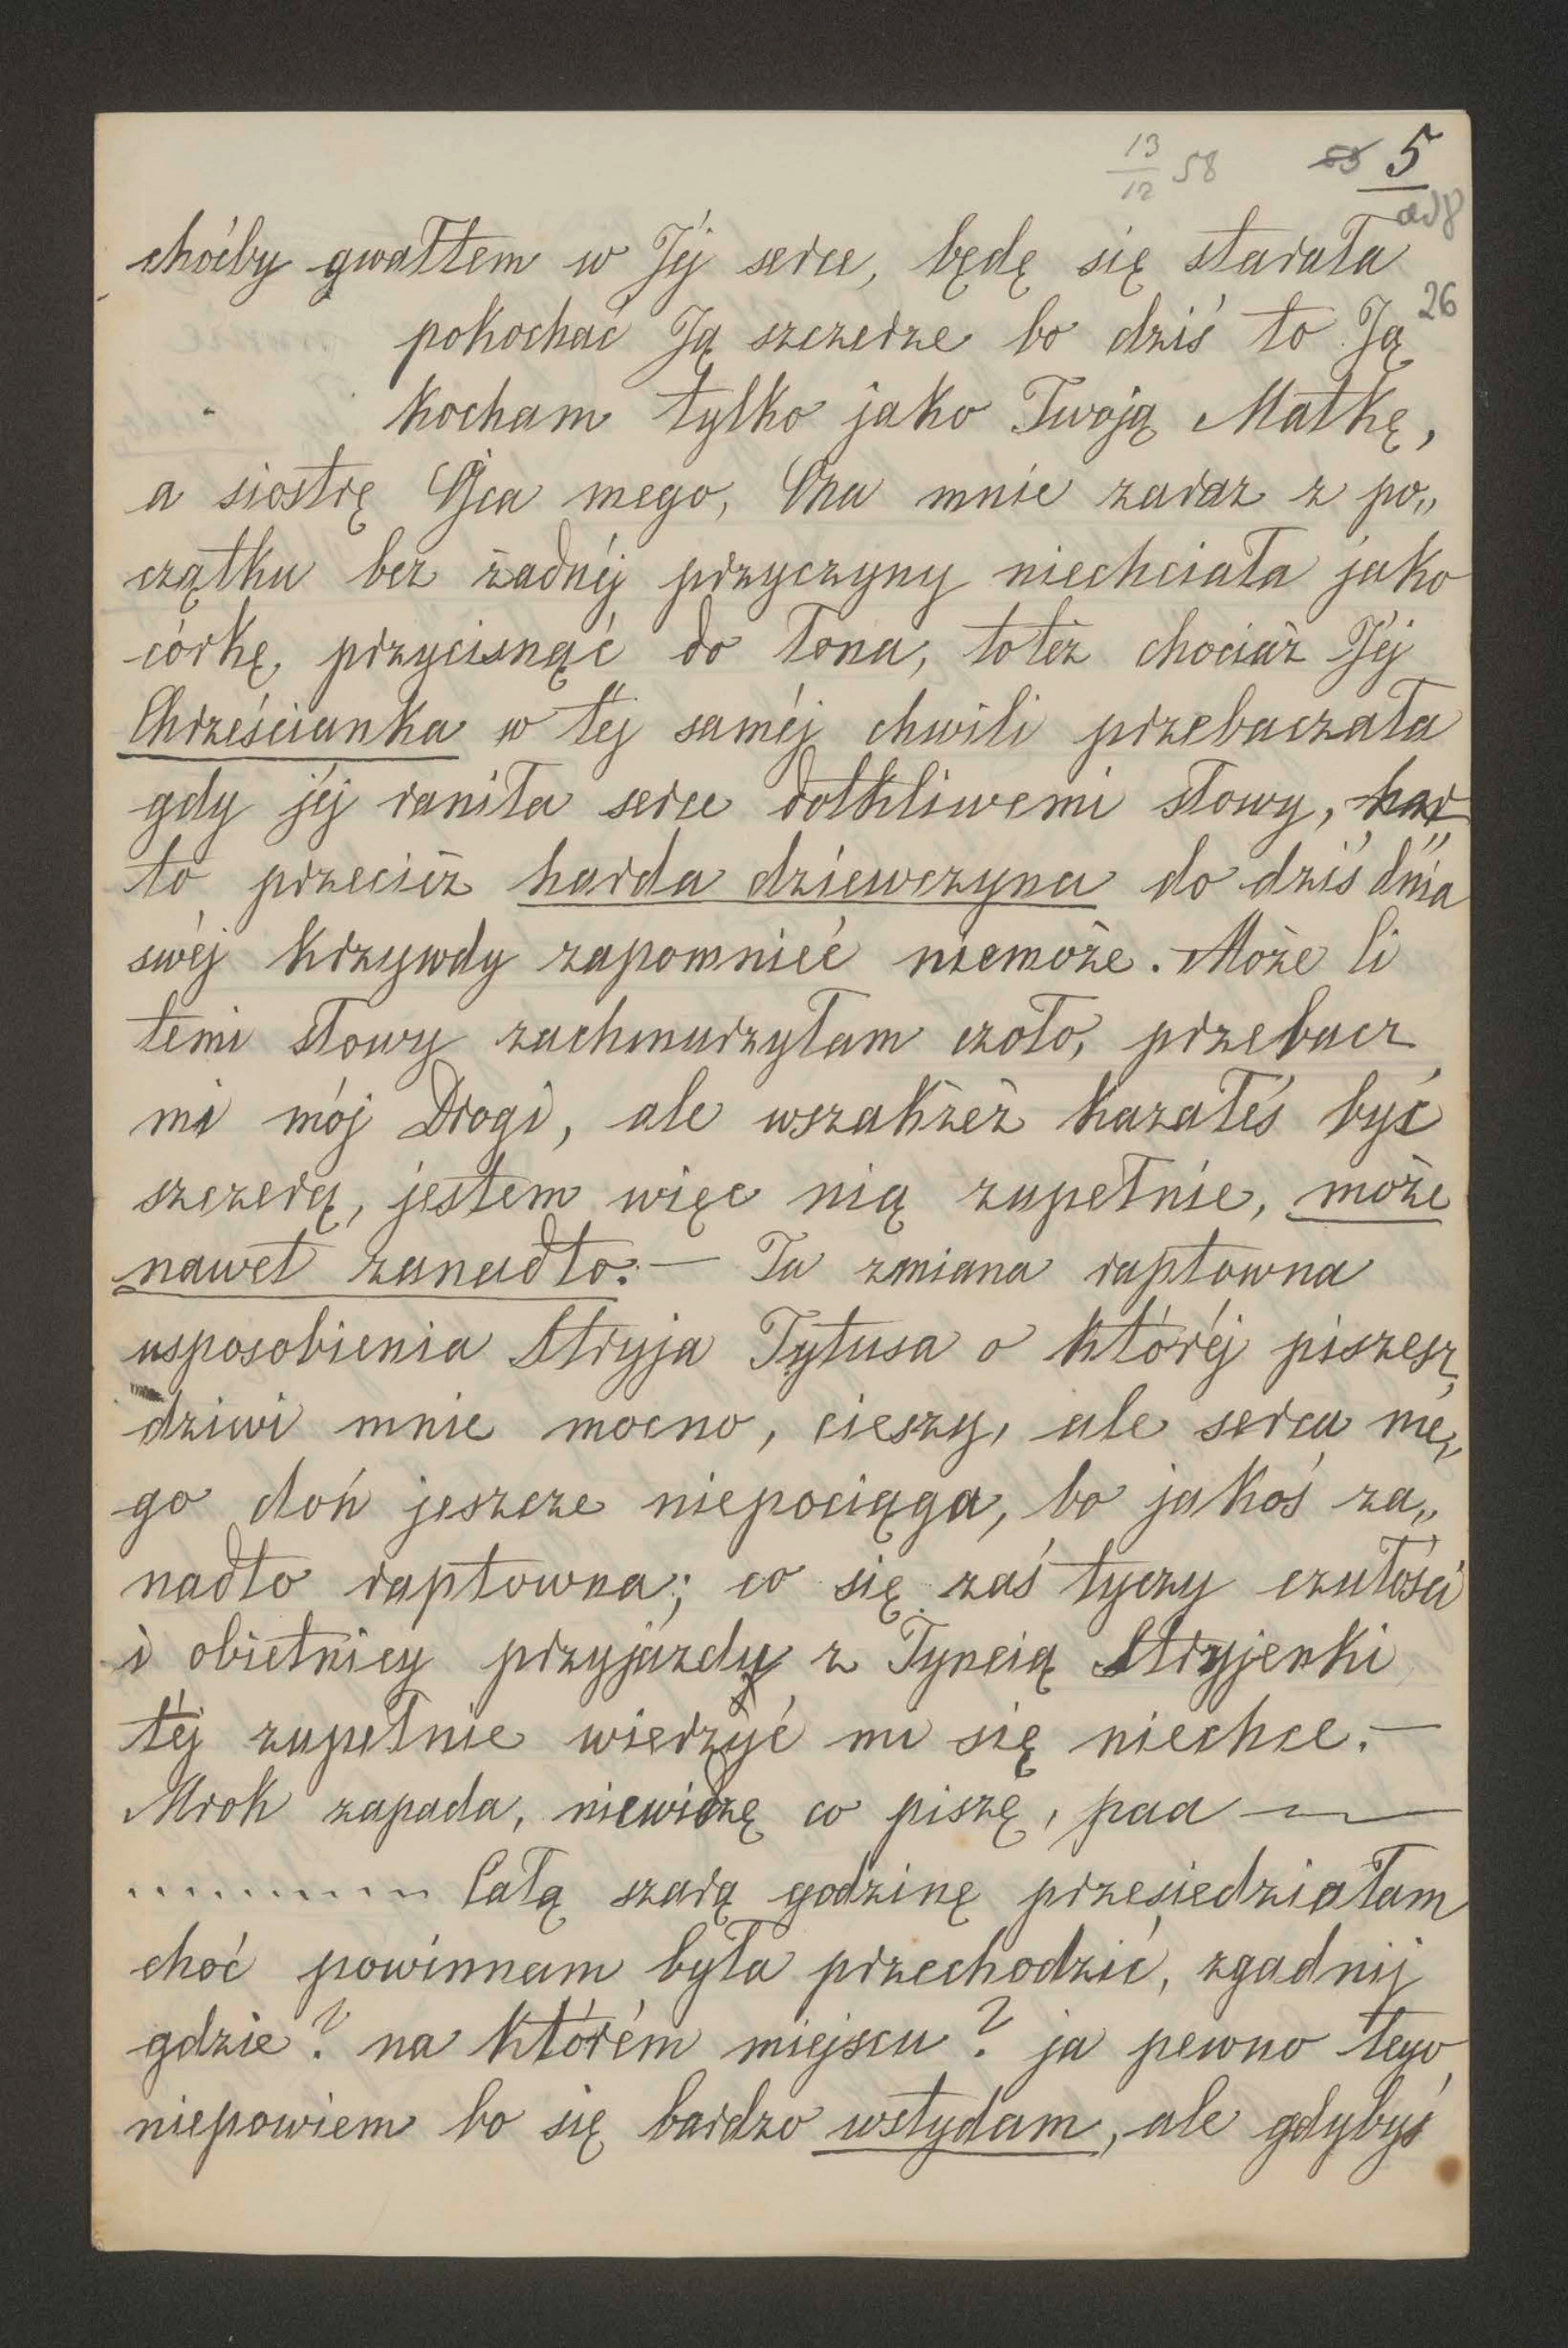 13/12 58 5
ad 8
choćby gwałtem w Jéj serce, będę się starała
26
pokochać Ją szczerze bo dziś to Ją
kocham tylko jako Twoją Matkę,
a siostrę Ojca mego, Ona mnie zaraz z po„
czątku bez żadnéj przyczyny niechciała jako
córkę, przycisnąć do łona, toteż chociaż Jéj
Chrześcianka w téj saméj chwili przebaczała
gdy jéj raniła serce dotkliwemi słowy, har
to przecież harda dziewczyna do dziś dnia
swéj krzywdy zapomnieć niemoże. Może li
temi słowy zachmurzyłam czoło, przebacz
mi mój Drogi, ale wszakżeż kazałeś być
szczerą, jestem więc nią zupełnie, może
nawet zanadto. — Ta zmiana raptowna
usposobienia Stryja Tytusa o któréj piszesz,
dziwi mnie mocno, cieszy, ale serca me„
go doń jeszcze niepociąga, bo jakoś za„
nadto raptowna; co się zaś tyczy czułości
i obietnicy przyjazdu z Tyncią Stryjenki
téj zupełnie wierzyć mi się niechce. —
Mrok zapada, niewidzę co piszę, paa —
.......... Całą szarą godzinę przesiedziałam
choć powinnam była przechodzić, zgadnij
gdzie? na którém miejscu? ja pewno tego
niepowiem bo się bardzo wstydam, ale gdybyś